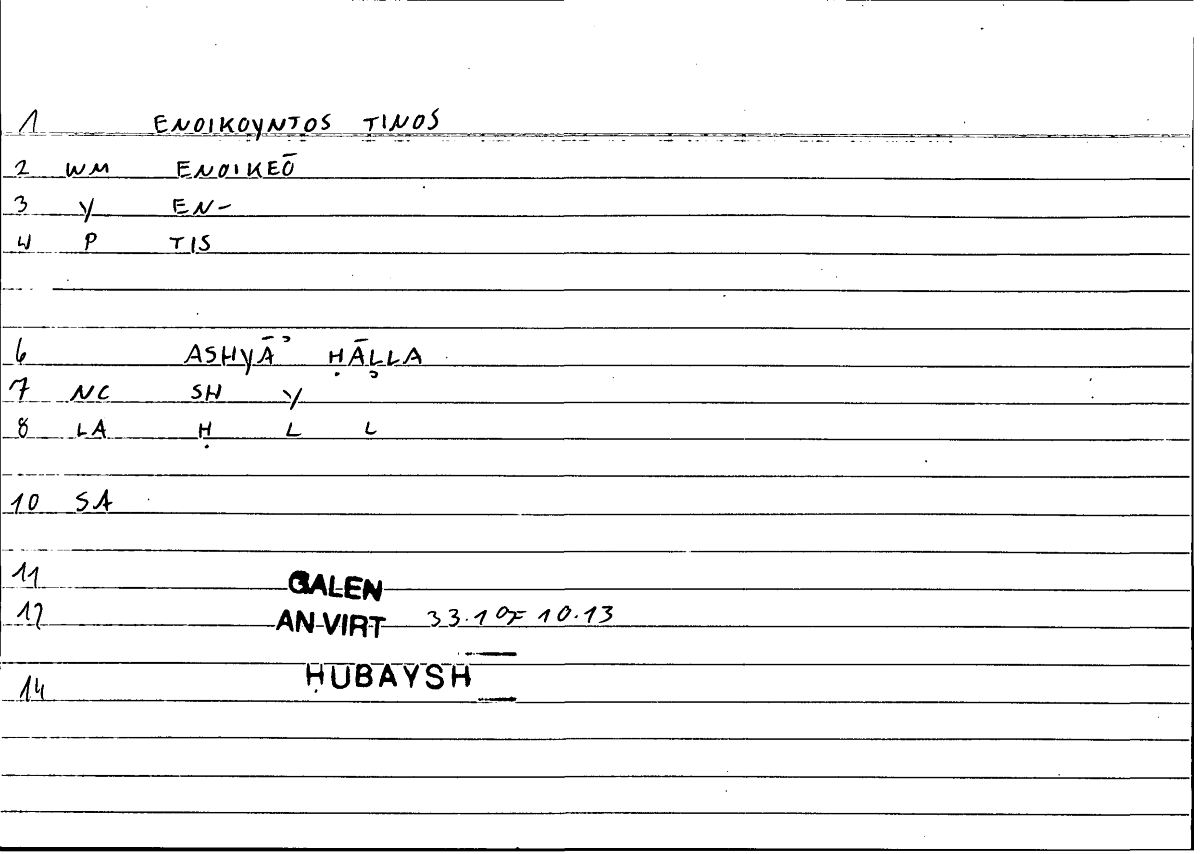 1 ENOIKOYNTOS TINOS
2 WM ENOIKEŌ
3 Y EN-
4 P TIS
6 ASHYĀʾ ḤĀLLA
7 NC SH Y
8 LA Ḥ L L
10 SA
11 GALEN
12 AN VIRT 33.10F 10.13
14 ḤUBAYSH